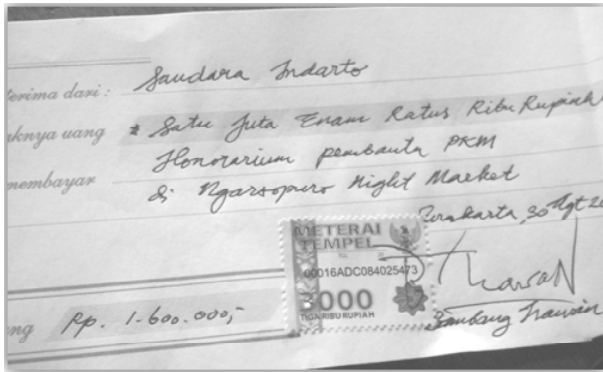 terima dari : Saudara Indarto
aknya uang # Satu Juta Enam Ratus Ribu Rupiah
Honorarium pembantu PKM
membayar
di Ngarsopuro Night Market
Surakarta, 30 Agt 20
METERAI
TEMPEL
00016ADC084025473
3000
TIGA RIBU RUPIAH
ng Rp. 1.600.000,-
Bambang